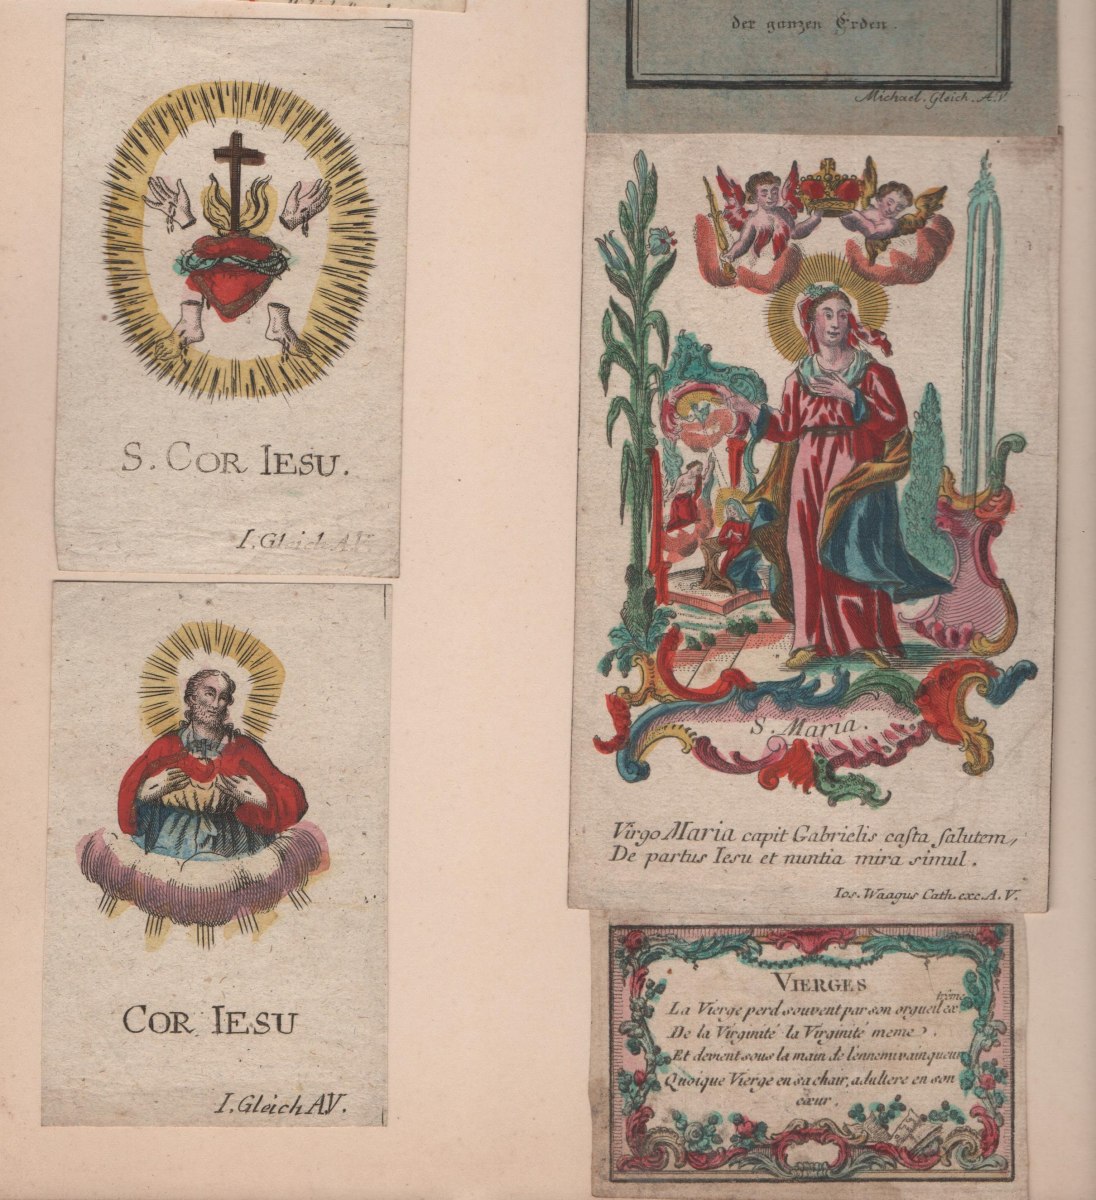 S. COR IESU.
I. Gleich A.V.
COR IESU
I. Gleich A.V.
der ganzen Erden
Michael. Gleich. A.V.
S. Maria.
Virgo Maria capit Gabrielis caſta ſalutem,
De partus Iesu et nuntia mira simul.
Ios. Waagus Cath. exc. A. V.
VIERGES
La Vierge perd souvent par son orgueil ex
trême
De la Virginité la Virginité meme.
Et devient sous la main de l'ennemi vainqueur
Quoique Vierge en sa chair, adultere en son
cœur.